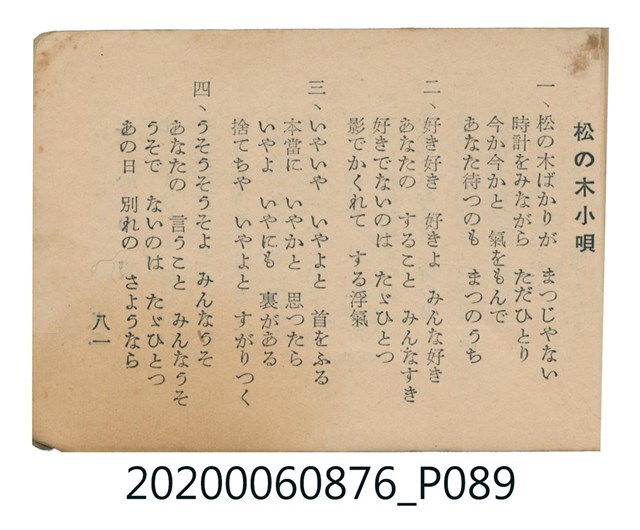 松の木小唄
一、松の木ばかりが まつじやない
時計をみながら ただひとり
今か今かと 氣をもんで
あなた待つのも まつのうち
二、好き好き 好きよ みんな好き
あなたの すること みんなすき
好きでないのは たゞひとつ
影でかくれて する浮氣
三、いやいや いやよと 首をふる
本當に いやかと 思つたら
いやよ いやにも 裏がある
捨てちや いやよと すがりつく
四、うそうそうそよ みんなうそ
あなたの 言うこと みんなうそ
うそで ないのは たゞひとつ
あの日 別れの さようなら
八一
20200060876_P089